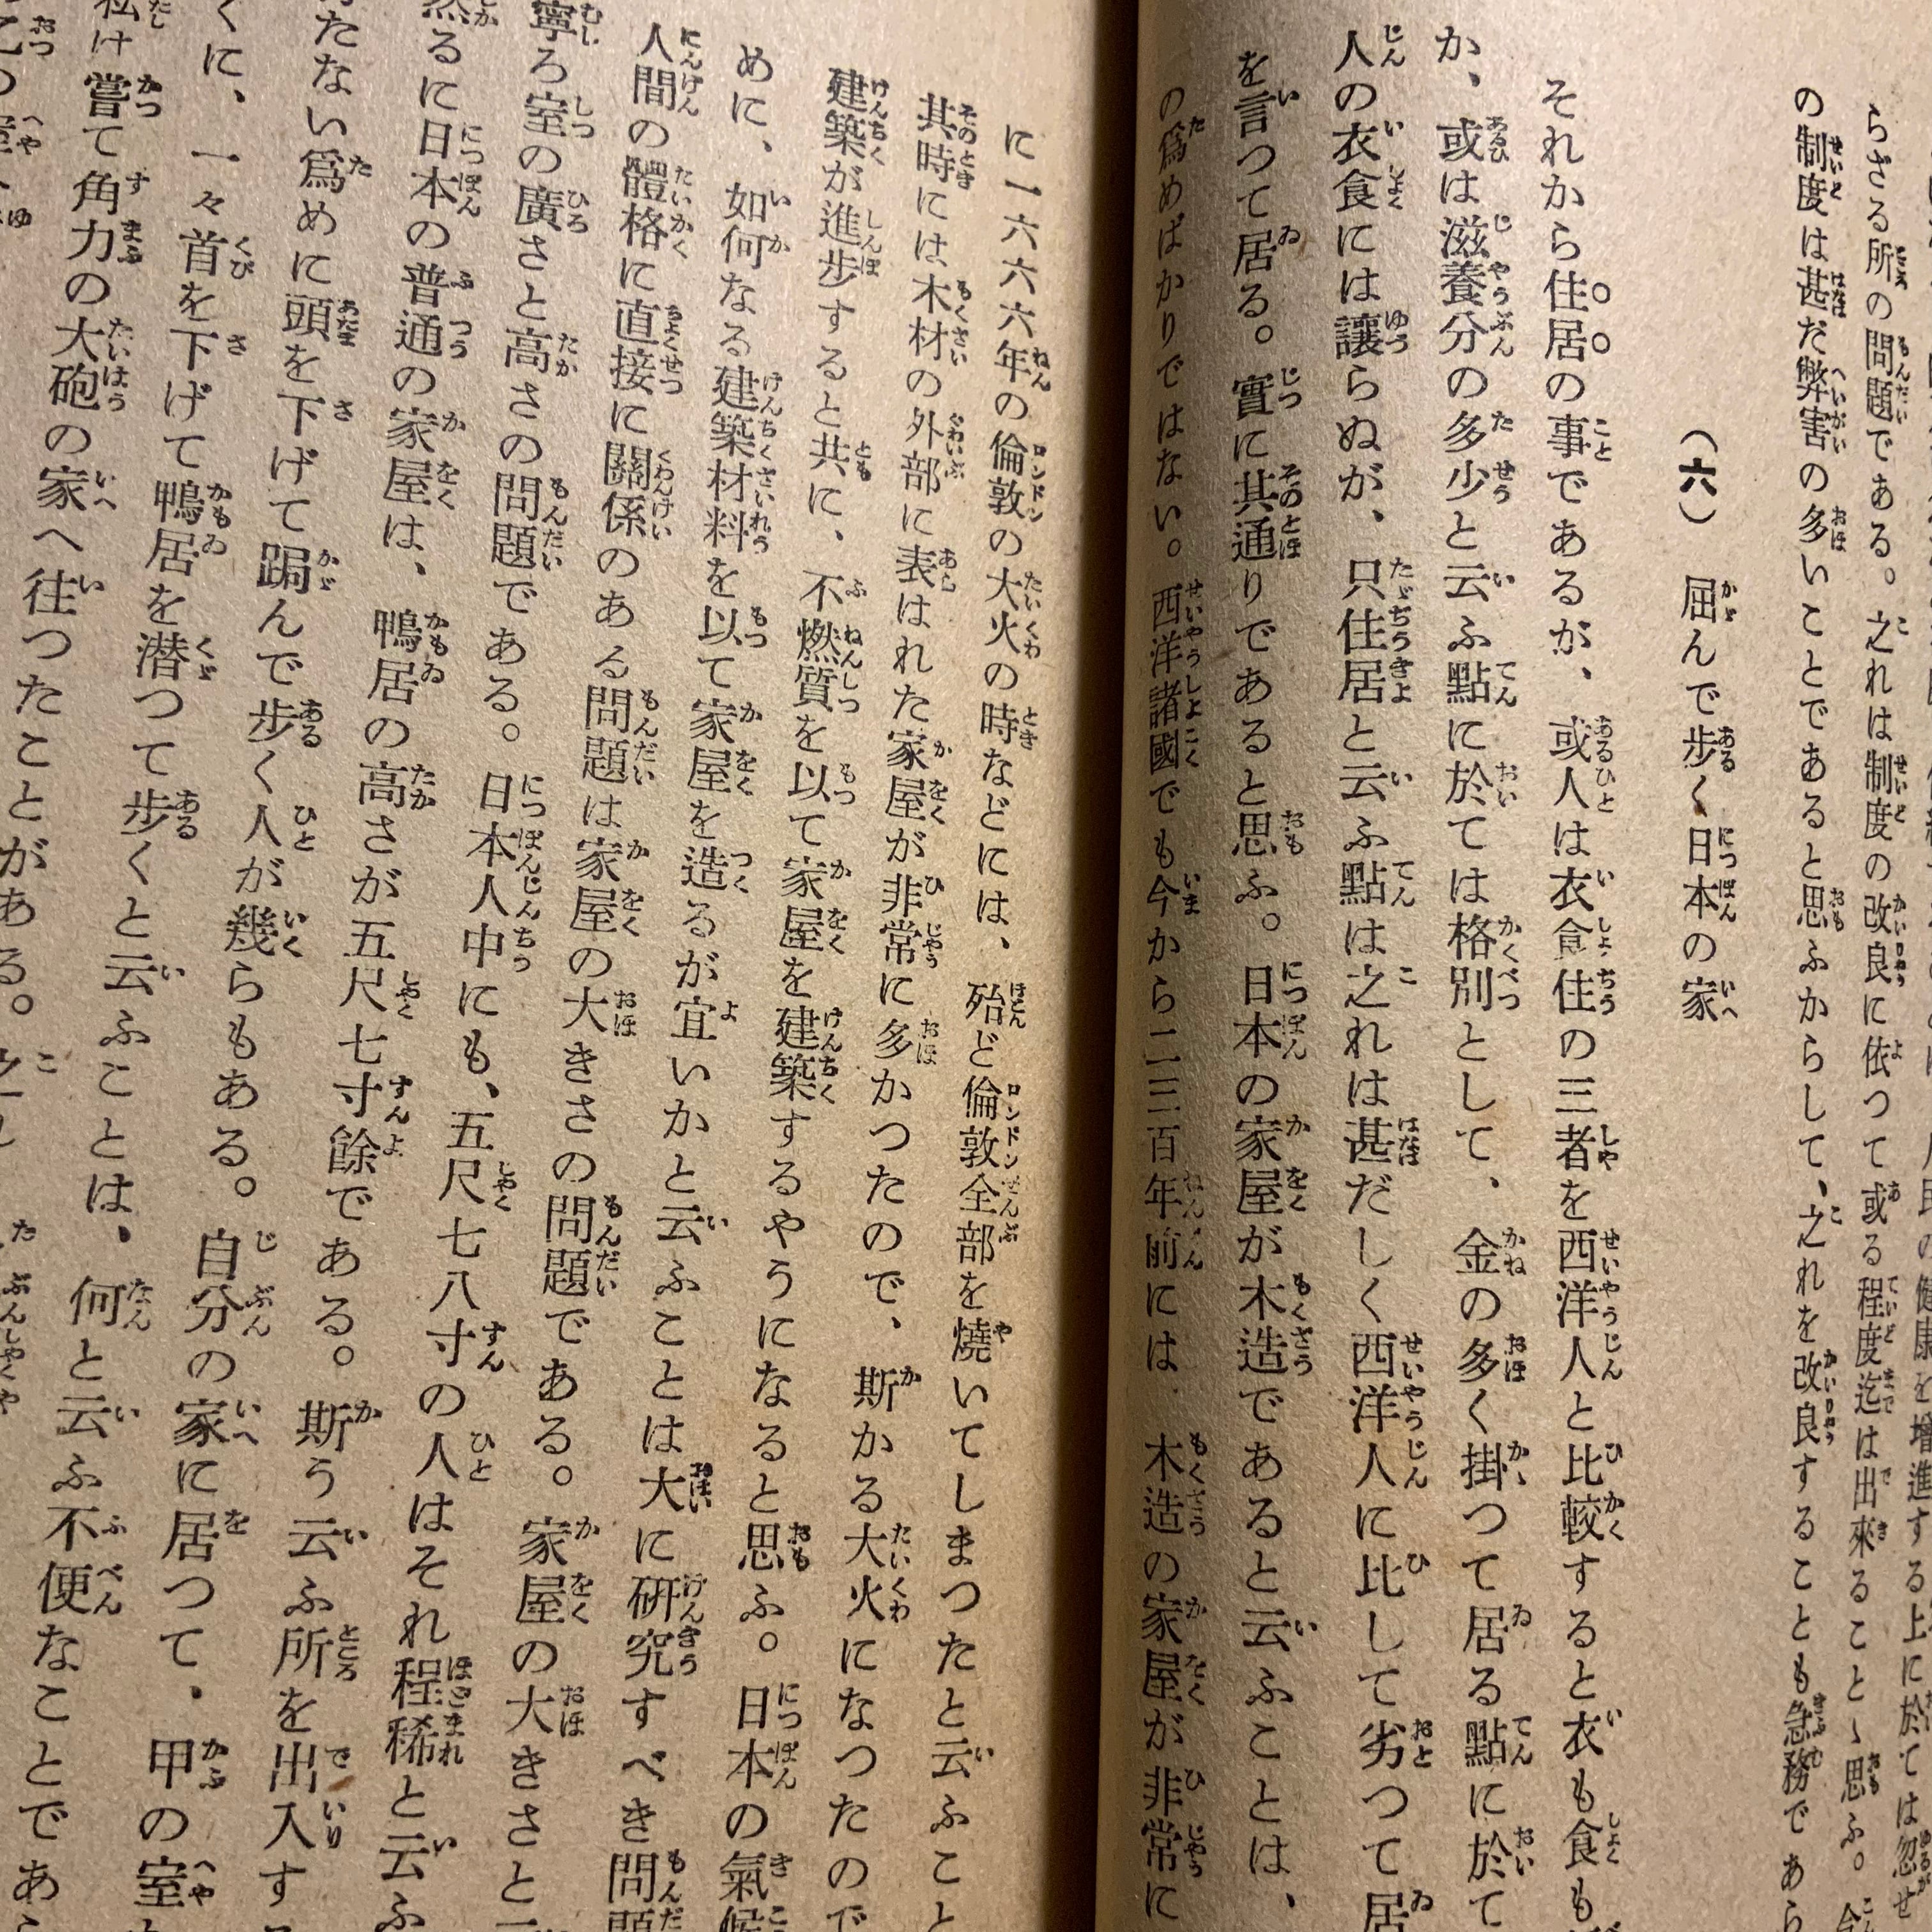 民の健康を増進する上に於ては忽せ
らざる所の問題である。之れは制度の改良に依つて或る程度迄は出來ることゝ思ふ。
の制度は甚だ弊害の多いことであると思ふからして、之れを改良することも急務であら
(六) 屈んで歩く日本の家
それから住居の事であるが、或人は衣食住の三者を西洋人と比較すると衣も食も
か、或は滋養分の多少と云ふ點に於ては格別として、金の多く掛つて居る點に於て
人の衣食には讓らぬが、只住居と云ふ點は之れは甚だしく西洋人に比して劣つて居
を言つて居る。實に其通りであると思ふ。日本の家屋が木造であると云ふことは、
の爲めばかりではない。西洋諸國でも今から二三百年前には木造の家屋が非常に
に一六六六年の倫敦の大火の時などには、殆ど倫敦全部を燒いてしまつたと云ふこと
其時には木材の外部に表はれた家屋が非常に多かつたので、斯かる大火になつたので
建築が進歩すると共に、不燃質を以て家屋を建築するやうになると思ふ。日本の氣候
めに、如何なる建築材料を以て家屋を造るが宜いかと云ふことは大に研究すべき問題
人間の體格に直接に關係のある問題は家屋の大きさの問題である。家屋の大きさと
寧ろ室の廣さと高さの問題である。日本人中にも、五尺七八寸の人はそれ程稀と云ふ
然るに日本の普通の家屋は、鴨居の高さが五尺七寸餘である。斯う云ふ所を出入す
たない爲めに頭を下げて跼んで歩く人が幾らもある。自分の家に居つて、甲の室
くに、一々首を下げて鴨居を潜つて歩くと云ふことは、何と云ふ不便なことであ
私は嘗て角力の大砲の家へ往つたことがある。之れ